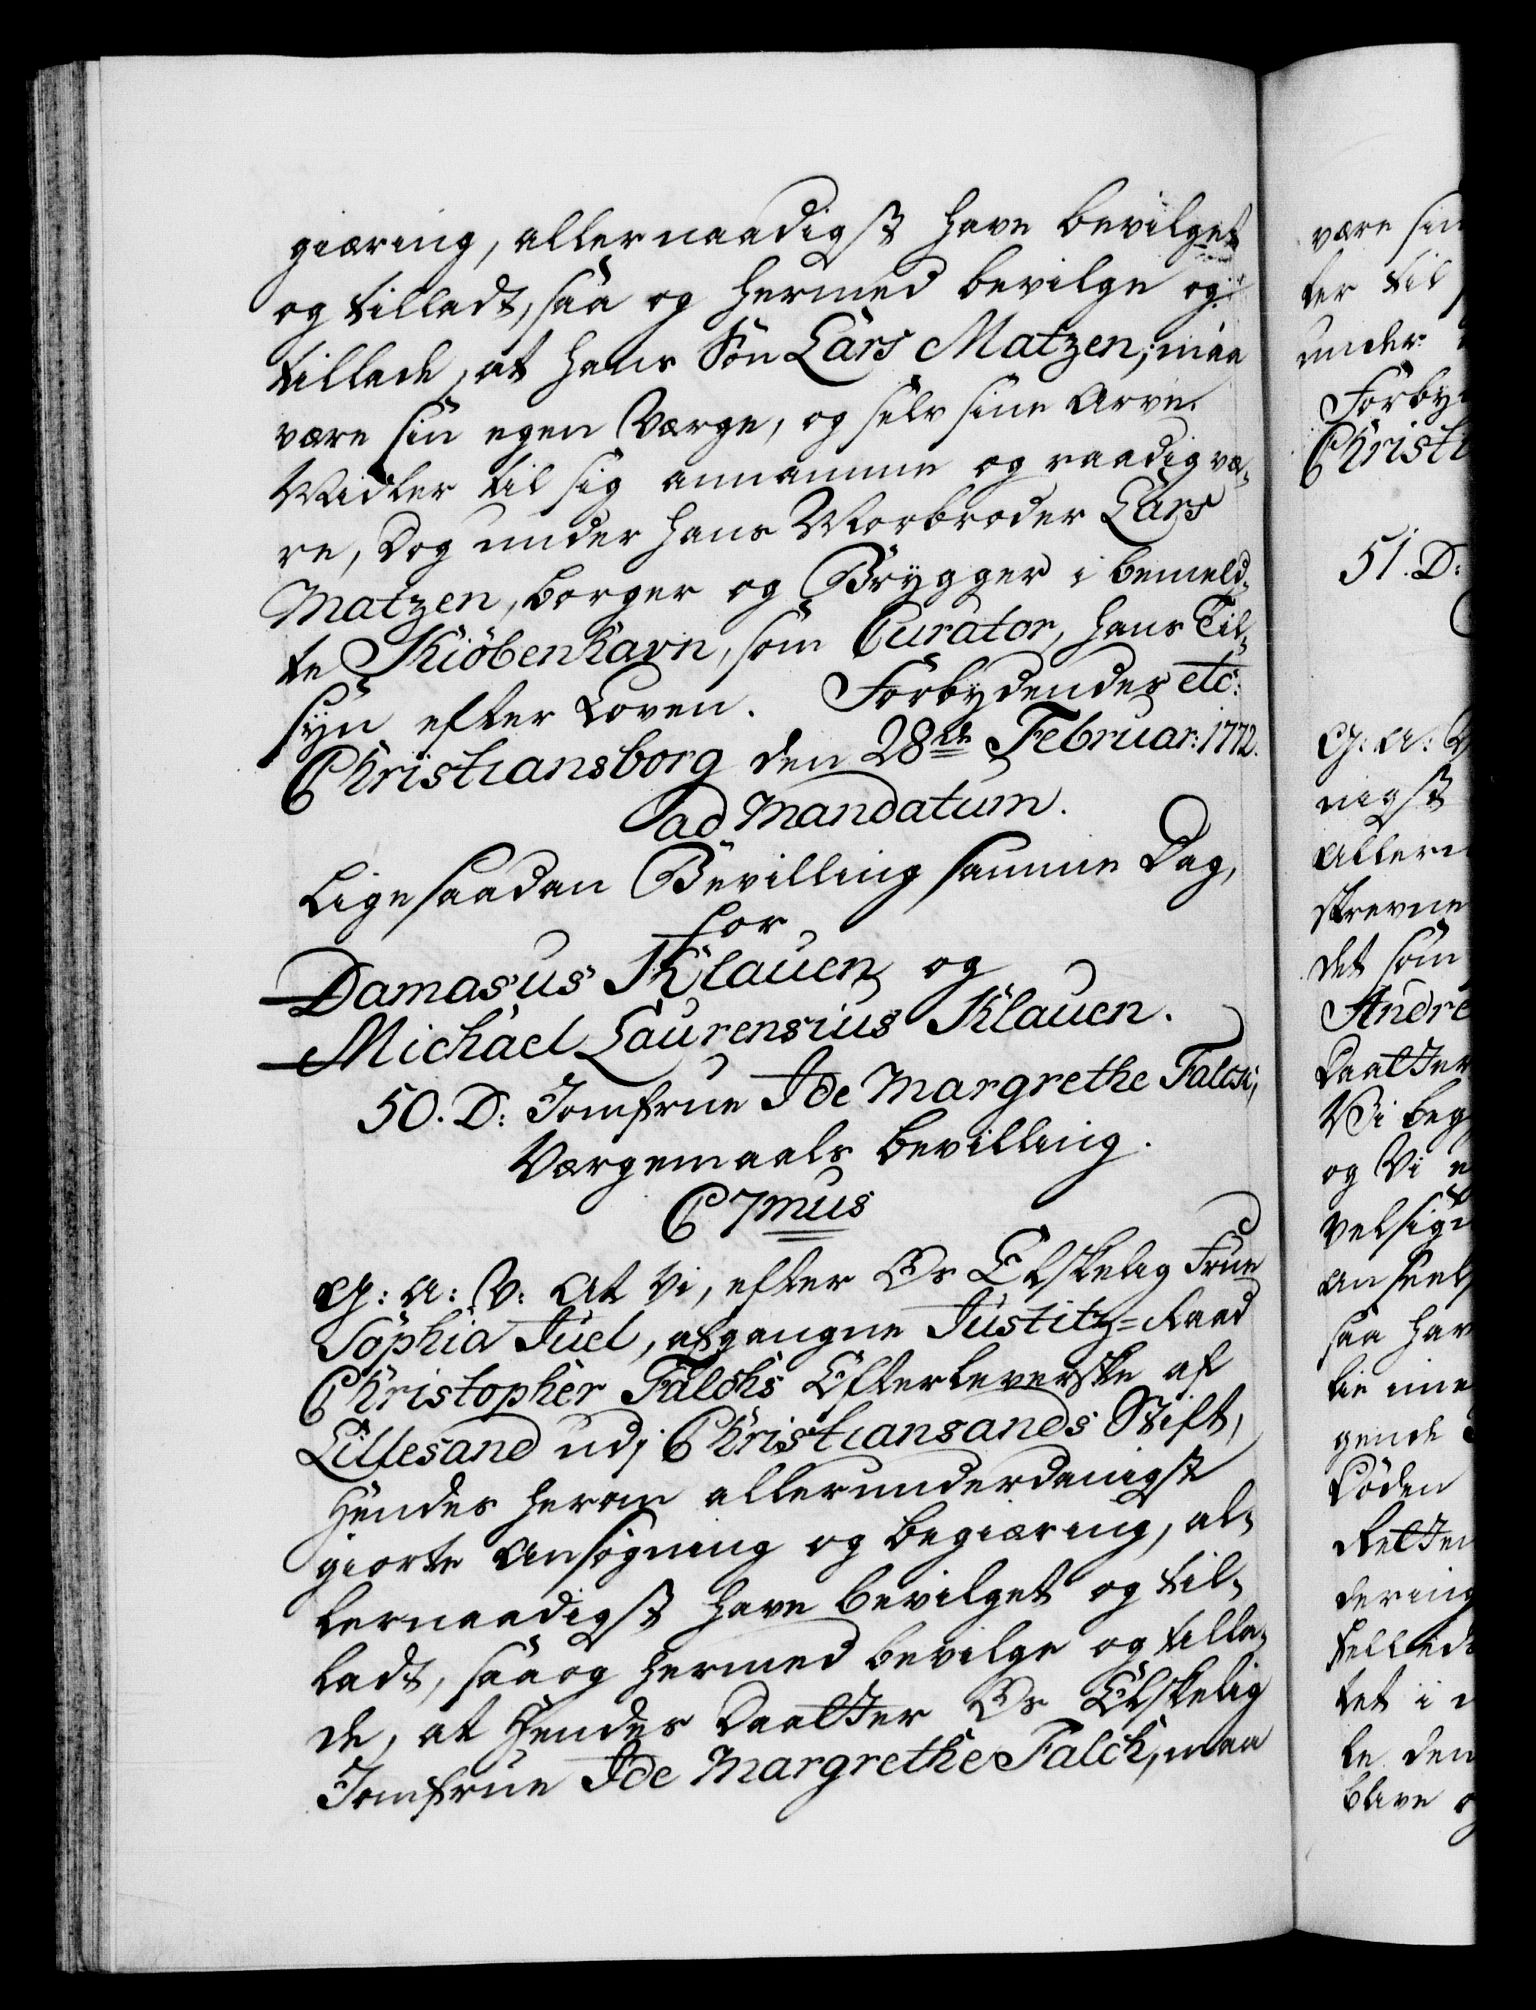 giæring, allernaadigst have bevilget
og tilladt, saa og hermed bevilge og
tillade, at hans Søn Lars Matzen, maa
være sin egen Værge, og selv sine Arve
Midler til sig annamme og raadig væ-
re, dog under hans Morbroder Lars
Matzen, borger og Brygger i bemeld-
te Kiöbenhavn, som Curator, hans Til-
syn efter Loven. Forbydendes etc:
Christiansborg den 28de Februar: 1772.
ad Mandatum.
Ligesaadan Bevilling samme Dag,
for
Damasus Klauen og
Michael Laurensius Klauen.
50. D: Jomfrue Ide Margrethe Falck,
Værgemaals bevilling.
C 7mus
G: A: V: At Vi, efter Os Elskelig Frue
Sophia Juel, afgangne Justitz-Raad
Christopher Falchs Efterleverske af
Lillesand udj Christiansands Stift,
Hendes herom allerunderdanigst
giorte Ansøgning og begiæring, al-
lernaadigst have bevilget og til-
ladt, saa og hermed bevilge og tilla-
de, at Hendes Daatter Os Elskelig
Jomfrue Ide Margrethe Falck, maa
være
ter til
under
Forby
Christi
51. D:
G: A: V
nigst
Allern
skrevne
det som
Andre
Daatter
Vi beg
og Vi
velsign
saa hav
gende
Döden
Retten
dering
tet i
le den
blive